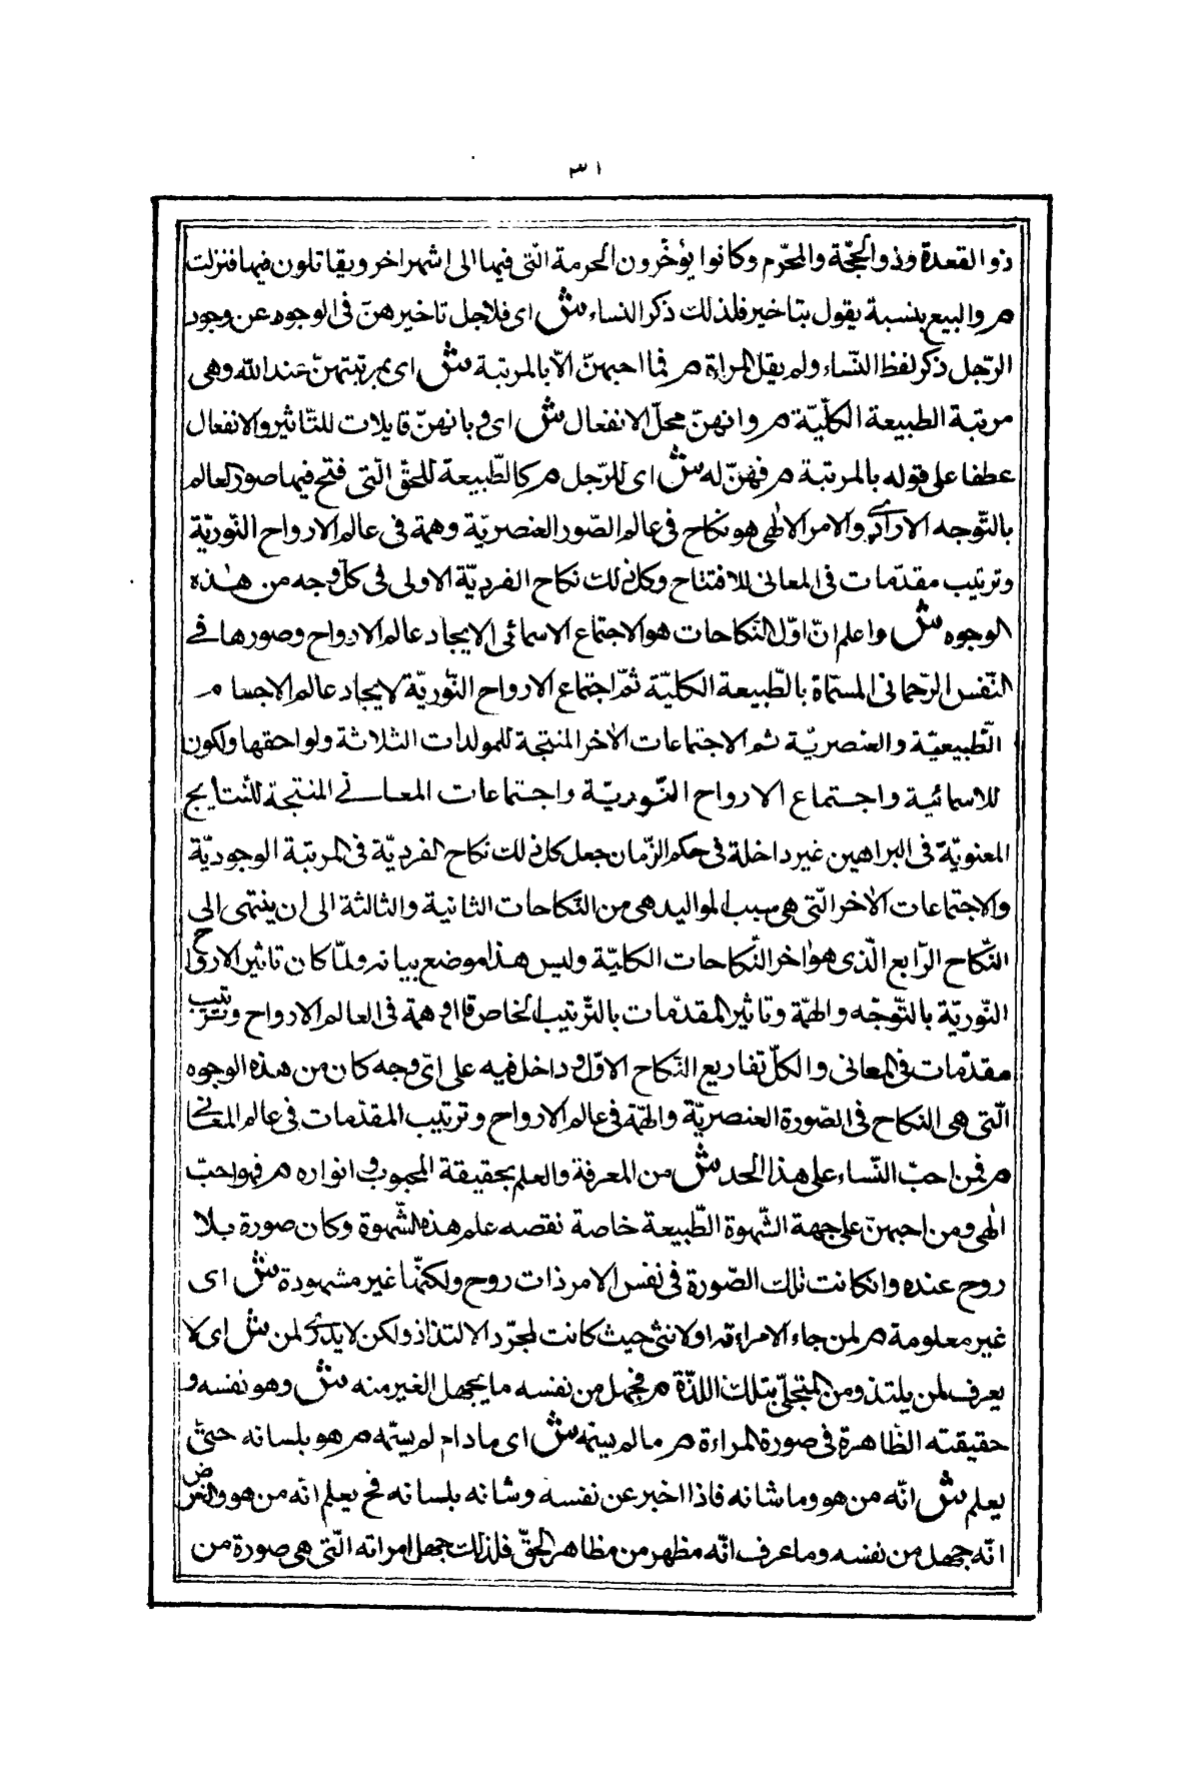 ٣١
ذو القعدة وذو الحجّة والمحرّم وكانوا يؤخّرون الحرمة الّتى فيها الى اشهر اخر ويقاتلون فيها فنزلت
م والبيع بنسية يقول بتاخير فلذلك ذكر النساء ش اى فلاجل تاخيرهنّ فى الوجود عن وجود
الرّجل ذكر لفظ النّساء ولم يقل المراة م فما احبهنّ الّا بالمرتبة ش اى بمرتبتهنّ عند الله وهى
مرتبة الطبيعة الكلّيّة م وانهنّ محلّ الانفعال ش اى وبانهنّ قابلات للتّاثير والانفعال
عطفا على قوله بالمرتبة م فهنّ له ش اى للرّجل م كالطّبيعة للحقّ الّتى فتح فيها صور العالم
بالتّوجه الارادى والامر الالٰهى هو نكاح فى عالم الصّور العنصريّة وهمة فى عالم الارواح النّوريّة
وترتيب مقدّمات فى المعانى للافتتاح وكل ذلك نكاح الفرديّة الاولى فى كلّ وجه من هٰذه
الوجوه ش واعلم انّ اوّل النّكاحات هو الاجتماع الاسمائى الايجاد عالم الارواح وصورها فى
النّفس الرّحمانى المسمّاة بالطّبيعة الكليّة ثمّ اجتماع الارواح النّوريّة لايجاد عالم الاجسام
الطّبيعيّة والعنصريّة ثم الاجتماعات الاخر المنتجة للمولدات الثلاثة ولواحقها ولكون
للاسمائية واجتماع الارواح النّوريّة واجتماعات المعانى المنتجة للنّتايج
المعنويّة فى البراهين غير داخلة فى حكم الزّمان جعل كل ذلك نكاح الفرديّة فى المرتبة الوجوديّة
والاجتماعات الاخر الّتى هى سبب المواليد هى من النّكاحات الثانية والثالثة الى ان ينتهى الى
النّكاح الرّابع الّذى هو اخر النّكاحات الكليّة وليس هذا موضع بيانه ولمّا كان تاثير الارواح
النّوريّة بالتّوجّه والهمّة وتاثير المقدّمات بالتّرتيب الخاص قال وهمة فى العالم الارواح وترتيب
مقدّمات فى المعانى والكلّ تفاريع النّكاح الاوّل وداخل فيه على اىّ وجه كان من هذه الوجوه
الّتى هى النكاح فى الصّورة العنصريّة والهمّة فى عالم الارواح وترتيب المقدّمات فى عالم المعانى
م فمن احبّ النّساء على هذا الحد ش من المعرفة والعلم بحقيقة المحبوب وانواره م فهو احبّ
الٰهى ومن احبهنّ على جهة الشّهوة الطّبيعة خاصة نقصه علم هذه الشّهوة وكان صورة بلا
روح عنده وان كانت تلك الصّورة فى نفس الامر ذات روح ولكنّها غير مشهودة ش اى
غير معلومة م لمن جاء لامراءته او لانثى حيث كانت لمجرّد الالتذاذ ولكن لا يدرى لمن ش اى لا
يعرف لمن يلتذ ومن المتجلّى بتلك اللذّة م فجهل من نفسه ما يجهل الغير منه ش وهو نفسه و
حقيقته الظّاهرة فى صورة المراءة م ما لم يسمّه ش اى ما دام لم يسمّه م هو بلسانه حتىّ
يعلم ش انّه من هو وما شانه فاذا اخبر عن نفسه وشانه بلسانه فح يعلم انّه من هو والغرض
انّه جهل من نفسه وما عرف انّه مظهر من مظاهر الحقّ فلذلك جهل امراته الّتى هى صورة من